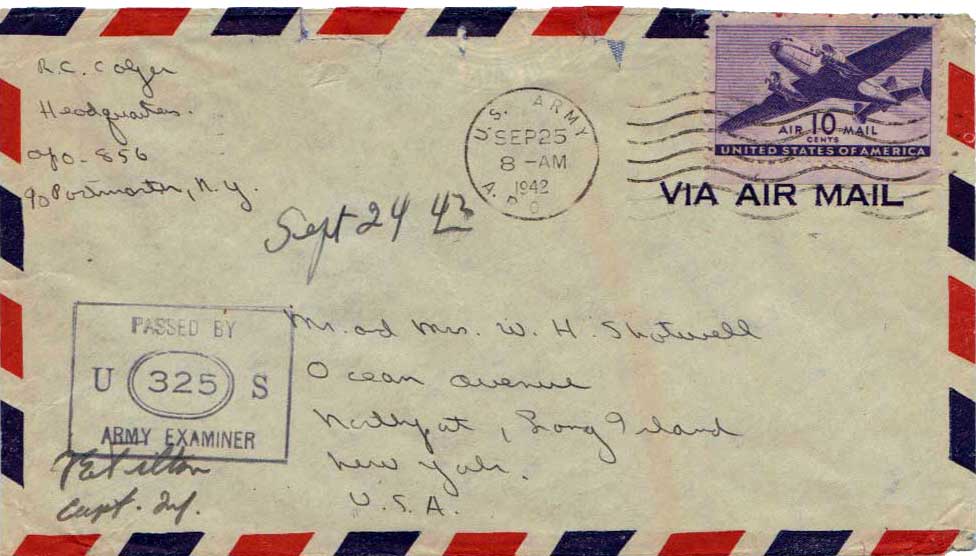 R. C. Colger
Headquarters.
APO - 856
℅ Postmaster, N. Y.
U.S. ARMY
SEP 25
8 -AM
1942
A.P.O.
AIR 10 MAIL
CENTS
UNITED STATES OF AMERICA
VIA AIR MAIL
Sept 24 43
PASSED BY
U 325 S
ARMY EXAMINER
Capt. Inf.
Mr. and Mrs. W. H. Shotwell
Ocean avenue
Northport, Long Island
New York.
U. S. A.